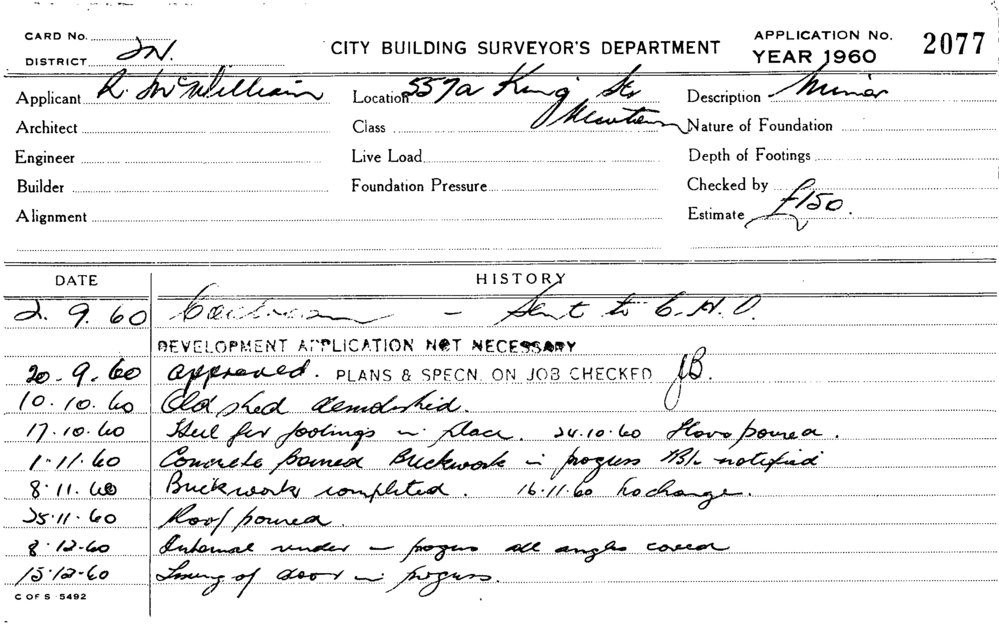 CARD No.
DISTRICT
CITY BUILDING SURVEYOR'S DEPARTMENT
APPLICATION No. 2077
YEAR 1960
Applicant R. McWilliam
Location 557a King St
Newtown
Description Minor
Architect
Class
Nature of Foundation
Engineer
Live Load
Depth of Footings
Builder
Foundation Pressure
Checked by
Alignment
Estimate £150.
DATE HISTORY
2. 9. 60 – Sent to C.H.O.
DEVELOPMENT APPLICATION NOT NECESSARY
20. 9. 60 approved. PLANS & SPECN. ON JOB CHECKED JB.
10. 10. 60 Old shed demolished.
17. 10. 60 Steel for footings in place. 24.10.60 poured.
1. 11. 60 Concrete poured Brickwork in progress notified
8. 11. 60 Brickwork completed. 16.11.60 No change.
25. 11. 60 Roof poured.
8. 12. 60 Internal render in progress all angles coved
15. 12. 60 of door in progress.
C OF S 5492